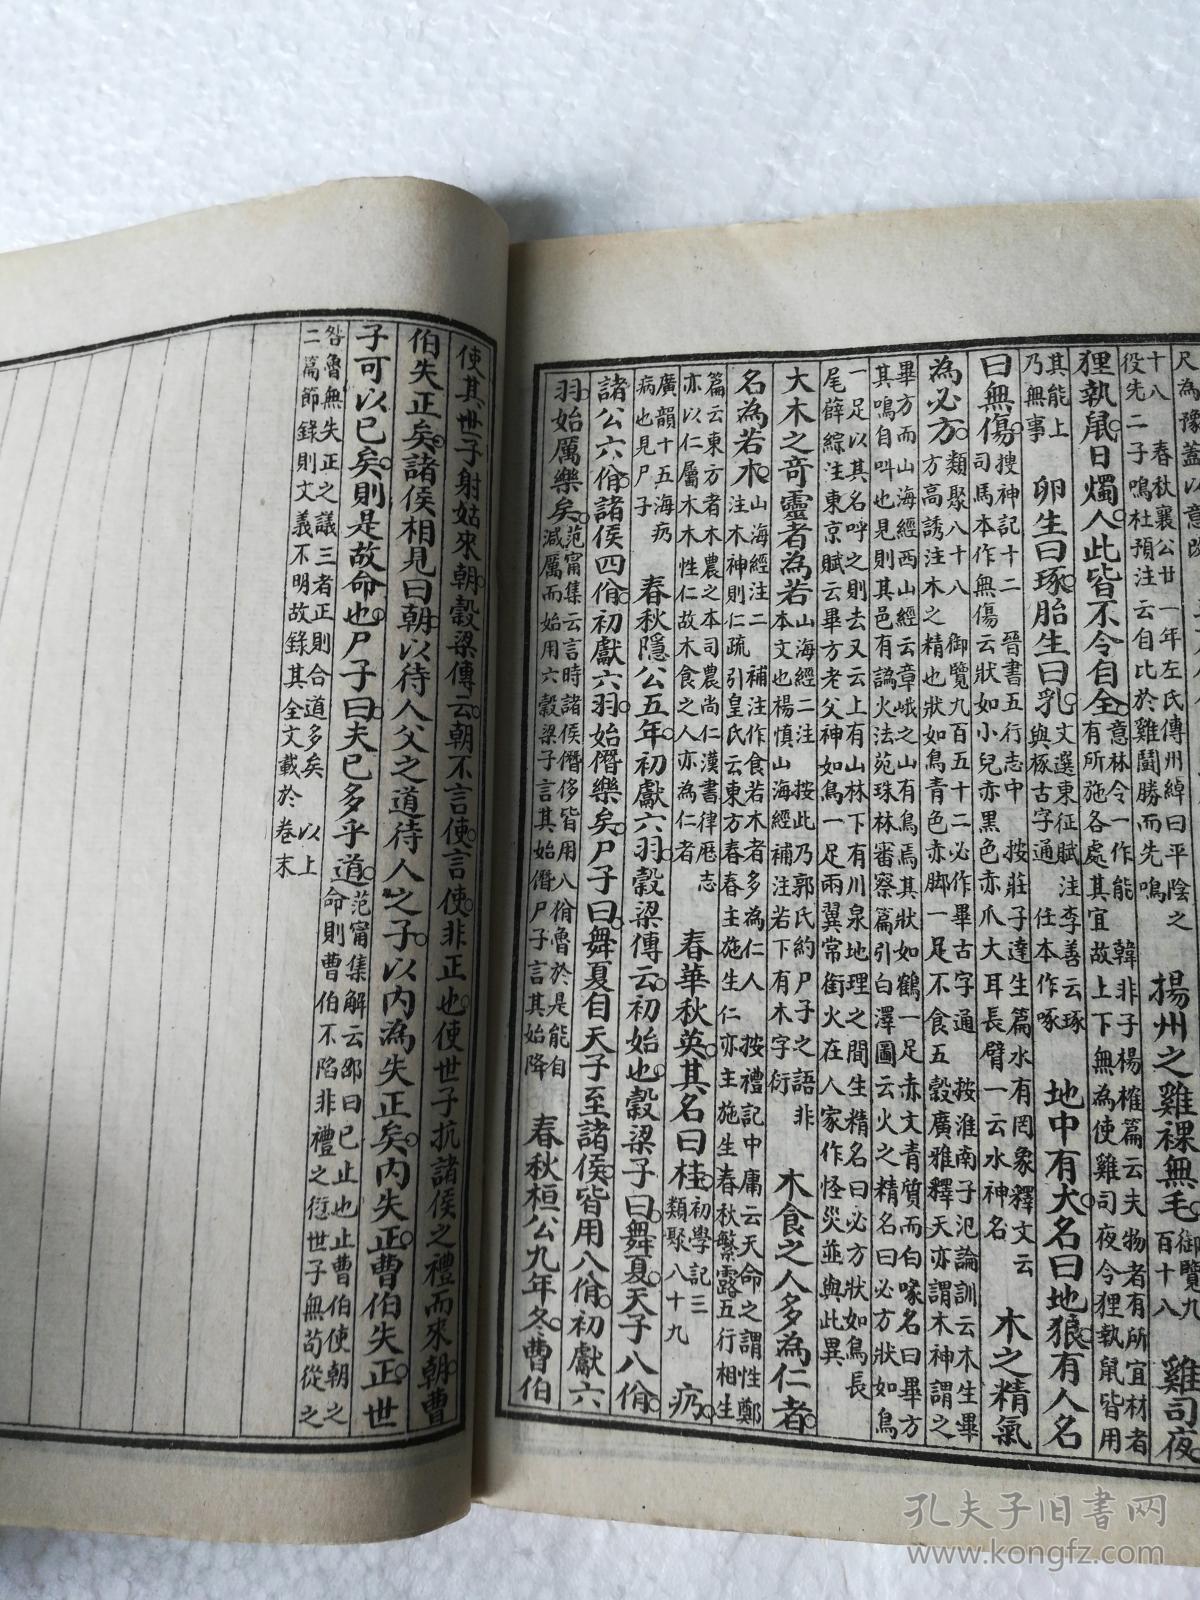 尺為豫蓋以意
十八　春秋襄公廿一年左氏傳州綽曰平陰之
役先二子鳴杜預注云自比於雞鬭勝而先鳴
揚州之雞裸無毛
御覽九
百十八
雞司夜
狸執鼠日燭人此皆不令自全
意林令一作能　韓非子楊榷篇云夫物者有所宜材者
有所施各處其宜故上下無為使雞司夜令狸執鼠皆用
其能上
乃無事
卵生曰琢胎生曰乳
文選東征賦注李善云琢
與椓古字通　任本作啄
地中有犬名曰地狼有人名
曰無傷
搜神記十二　晉書五行志中　按莊子達生篇水有罔象釋文云
司馬本作無傷云狀如小兒赤黑色赤爪大耳長臂一云水神名
木之精氣
為必方
類聚八十八　御覽九百五十二必作畢古字通　按淮南子氾論訓云木生畢
方高誘注木之精也狀如鳥青色赤脚一足不食五穀廣雅釋天亦謂木神謂之
畢方而山海經西山經云章峨之山有鳥焉其狀如鶴一足赤文青質而白喙名曰畢方
其鳴自叫也見則其邑有譌火法苑珠林審察篇引白澤圖云火之精名曰必方狀如鳥
一足以其名呼之則去又云上有山林下有川泉地理之間生精名曰必方狀如鳥長
尾薛綜注東京賦云畢方老父神如鳥一足兩翼常銜火在人家作怪災並與此異
大木之奇靈者為若
山海經二注　按此乃郭氏約尸子之語非
本文也楊慎山海經補注若下有木字衍
木食之人多為仁者
名為若木
山海經注二　補注作食若木者多為仁人　按禮記中庸云天命之謂性鄭
注木神則仁疏引皇氏云東方春春主施生仁亦主施生春秋繁露五行相生
篇云東方者木農之本司農尚仁漢書律厯志
亦以仁屬木木性仁故木食之人亦為仁者
春華秋英其名曰桂
初學記三
類聚八十九
疠
廣韻十五海疠
病也見尸子
春秋隱公五年初獻六羽穀梁傳云初始也穀梁子曰舞夏天子八佾
諸公六佾諸侯四佾初獻六羽始僭樂矣尸子曰舞夏自天子至諸侯皆用八佾初獻六
羽始厲樂矣
范甯集云言時諸侯僭侈皆用八佾魯於是能自
減厲而始用六穀梁子言其始僭尸子言其始降
春秋桓公九年冬曹伯
使其世子射姑來朝穀梁傳云朝不言使言使非正也使世子抗諸侯之禮而來朝曹
伯失正矣諸侯相見曰朝以待人父之道待人之子以內為失正矣內失正曹伯失正世
子可以已矣則是故命也尸子曰夫已多乎道
范甯集解云邵曰已止也止曹伯使朝之
命則曹伯不陷非禮之愆世子無苟從之
咎魯無失正之議三者正則合道多矣　以上
二篇節錄則文義不明故錄其全文載於卷末